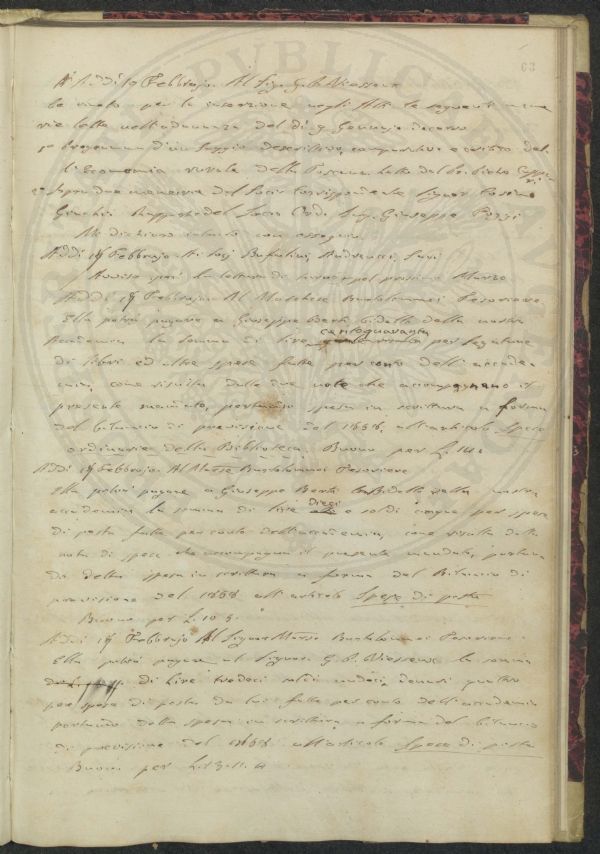 63
Addì 19 Febbrajo Al Sig. G. P. Vieusseux
Le mando per la inserzione negli Atti le seguenti memo
rie lette nell'adunanza del dì 9 Gennajo decorso
1° Prolegomeni d'un Saggio descrittivo, comparativo e critico del
l'Economia rurale della Toscana letta dal
2° Sopra due memorie del Socio Corrispondente Signor
Rapporto del Socio Ord. Sig. Giuseppe
Mi dichiaro intanto con ossequio
Addì 19 Febbrajo Ai Sigg. Bufalini, Andreucci,
Avviso per la lettura di pel prossimo Marzo
Addì 19 Febbrajo Al Marchese Bartolommei Tesoriere
Ella potrà pagare a Giuseppe Berti bidello della nostra
centoquaranta
Accademia la somma di lire per legature
di libri ed altre spese fatte per conto dell'accade
mia, come risulta dalle due note che accompagnano il
presente mandato, portando spesa in scrittura a forma
del bilancio di previsione del 1858, all'articolo Spese
ordinarie della Biblioteca. Buono per L. 140
Addì 19 Febbrajo Al Masse Bartolommei Tesoriere
Ella potrà pagare a Giuseppe Berti Bidello della nostra
dieci
accademia la somma di lire e soldi cinque per spese
di posta fatte per conto dell'accademia, come risulta dalla
nota di spese che accompagna il presente mandato, portan
do detta spesa in scrittura a forma del Bilancio di
previsione del 1858 all'articolo Spese di posta
Buono per L. 10 5.
Addì 19 Febbrajo Al Signor Masse Bartolommei Tesoriere
Ella potrà pagare al Signor G. P. Vieusseux la somma
di lire tredici soldi undici denari quattro
per spese di posta da lui fatte per conto dell'accademia
portando detta spesa in scrittura a forma del bilancio
di previsione del 1858 all'articolo Spese di posta
Buono per L. 13 11. 4